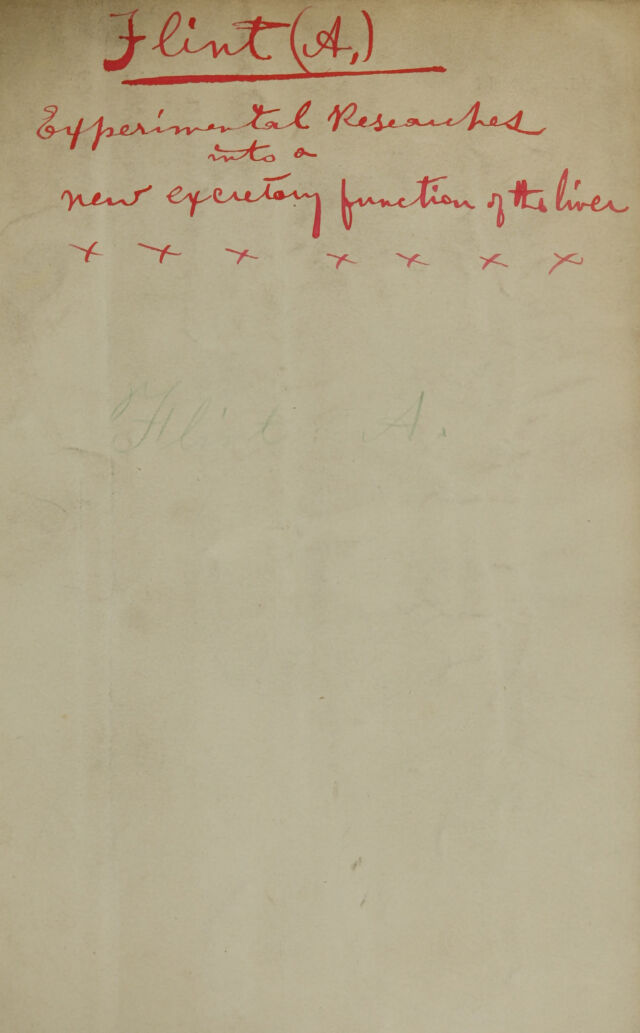 Flint (A.)
Experimental Researches
into a
new excretory function of the liver
x x x x x x x
Flint. A.